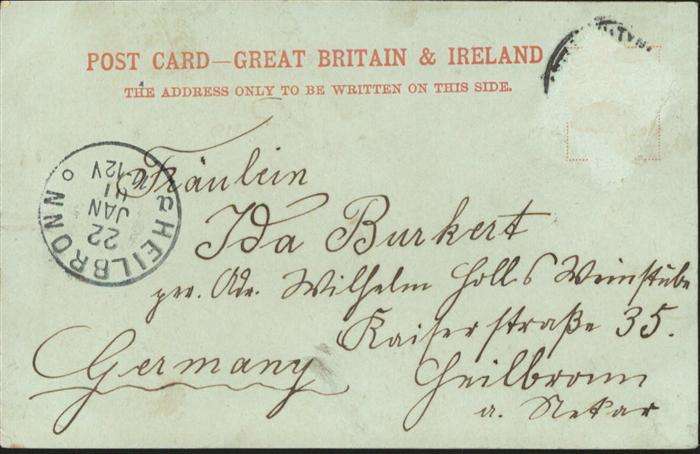 POST CARD—GREAT BRITAIN & IRELAND
THE ADDRESS ONLY TO BE WRITTEN ON THIS SIDE.
HEILBRONN
22
JAN
01
12V
Fräulein
Ida Burkert
pr. Adr. Wilhelm Holl's Weinstube
Kaiserstraße 35.
Germany
Heilbronn
a. Nekar